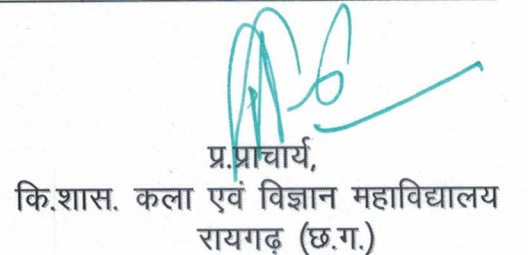 प्र.प्राचार्य,
कि.शास. कला एवं विज्ञान महाविद्यालय
रायगढ़ (छ.ग.)